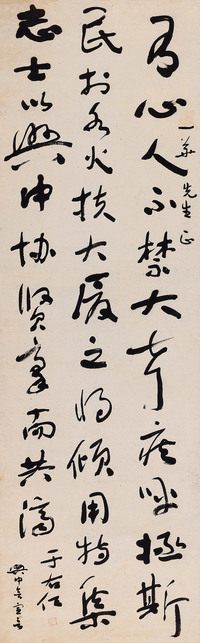 有心人不禁大聲疾呼拯斯
民於水火扶大廈之將傾用特集
志士以興中協賢豪而共濟
先生正
興中會宣言
于右任